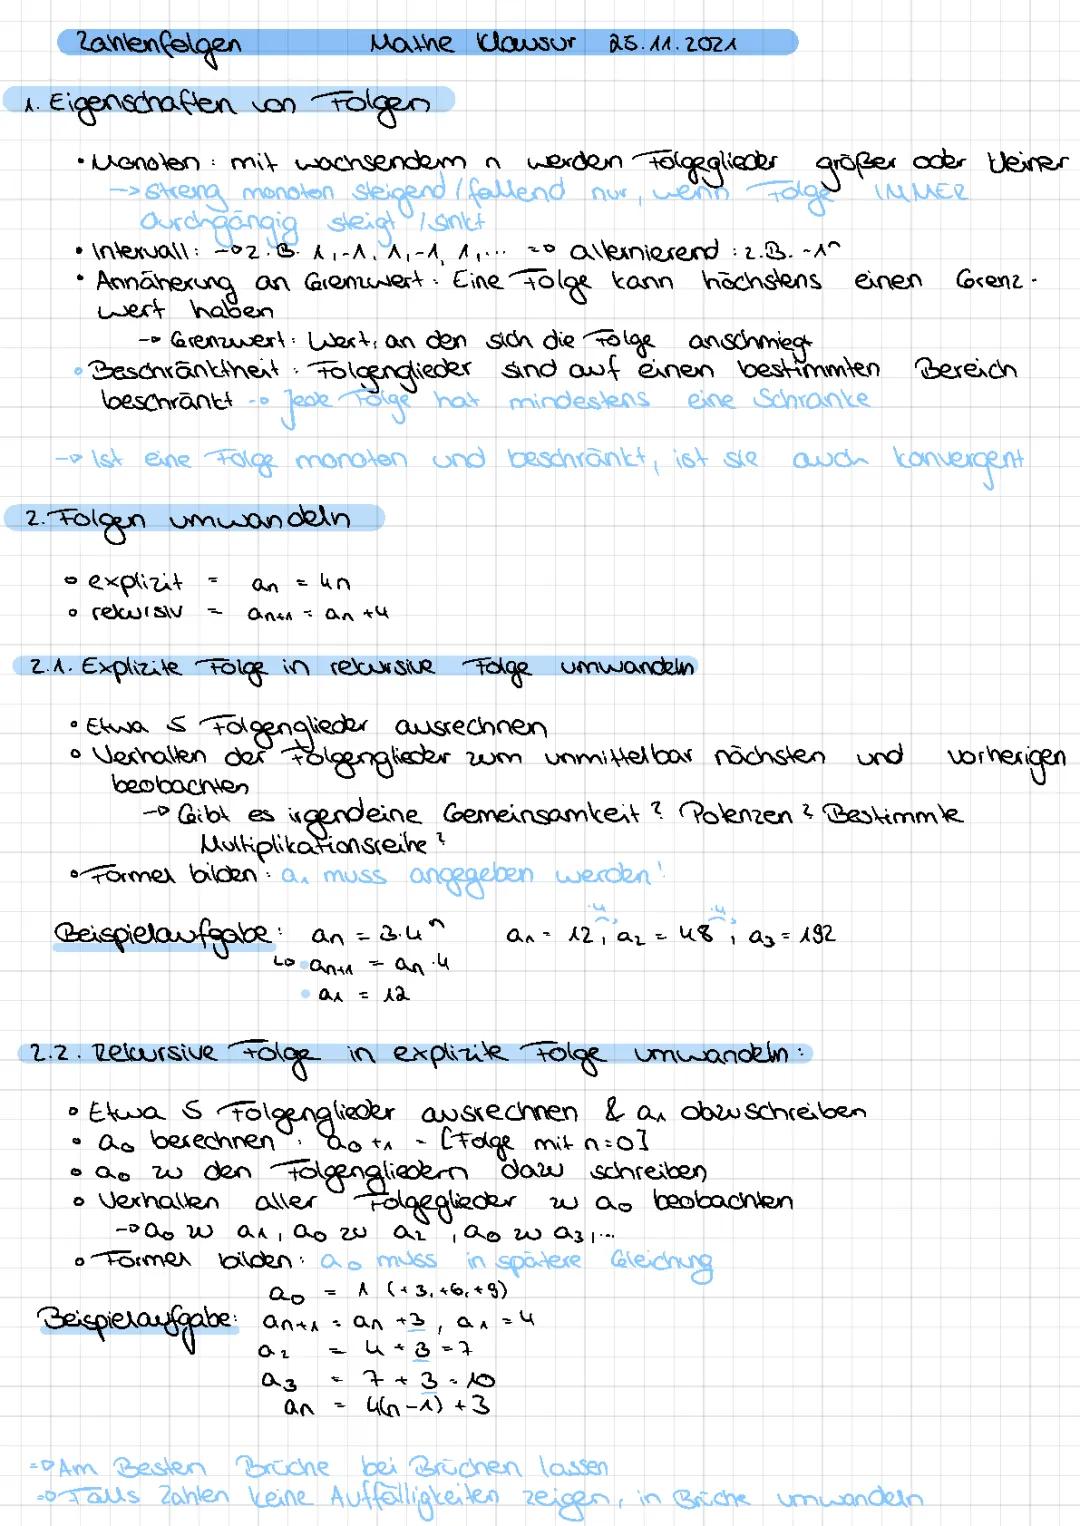 Zahlenfolgen Mathe Klausur 25.11.2021
1. Eigenschaften von Folgen
• Monoton: mit wachsendem n werden Folgeglieder größer oder kleiner
→ streng monoton steigend / fallend nur, wenn Folge IMMER
durchgängig steigt / sinkt
• Intervall: → z.B. 1,-1,1,-1,1,... => alternierend: z.B. -1^n
• Annäherung an Grenzwert: Eine Folge kann höchstens einen Grenz-
wert haben
→ Grenzwert: Wert, an den sich die Folge anschmiegt
• Beschränktheit: Folgenglieder sind auf einen bestimmten Bereich
beschränkt → Jede Folge hat mindestens eine Schranke
→ Ist eine Folge monoton und beschränkt, ist sie auch konvergent
2. Folgen umwandeln
• explizit = an = 4n
• rekursiv = an+1 = an +4
2.1. Explizite Folge in rekursive Folge umwandeln
• Etwa 5 Folgenglieder ausrechnen
• Verhalten der Folgenglieder zum unmittelbar nächsten und vorherigen
beobachten
→ Gibt es irgendeine Gemeinsamkeit? Potenzen? Bestimmte
Multiplikationsreihe?
• Formel bilden: a1 muss angegeben werden!
·4 ·4
Beispielaufgabe: an = 3·4^n a1 = 12, a2 = 48, a3 = 192
↳ • an+1 = an ·4
• a1 = 12
2.2. Rekursive Folge in explizite Folge umwandeln:
• Etwa 5 Folgenglieder ausrechnen & a1 dazuschreiben
• a0 berechnen: a0+1 - [Folge mit n=0]
• a0 zu den Folgengliedern dazu schreiben
• Verhalten aller Folgeglieder zu a0 beobachten
→ a0 zu a1, a0 zu a2, a0 zu a3,...
• Formel bilden: a0 muss in spätere Gleichung
a0 = 1 (+3,+6,+9)
Beispielaufgabe: an+1 = an +3, a1 = 4
a2 = 4 + 3 = 7
a3 = 7 + 3 = 10
an = 4(n-1) +3
=> Am Besten Brüche bei Brüchen lassen
=> Falls Zahlen keine Auffälligkeiten zeigen, in Brüche umwandeln